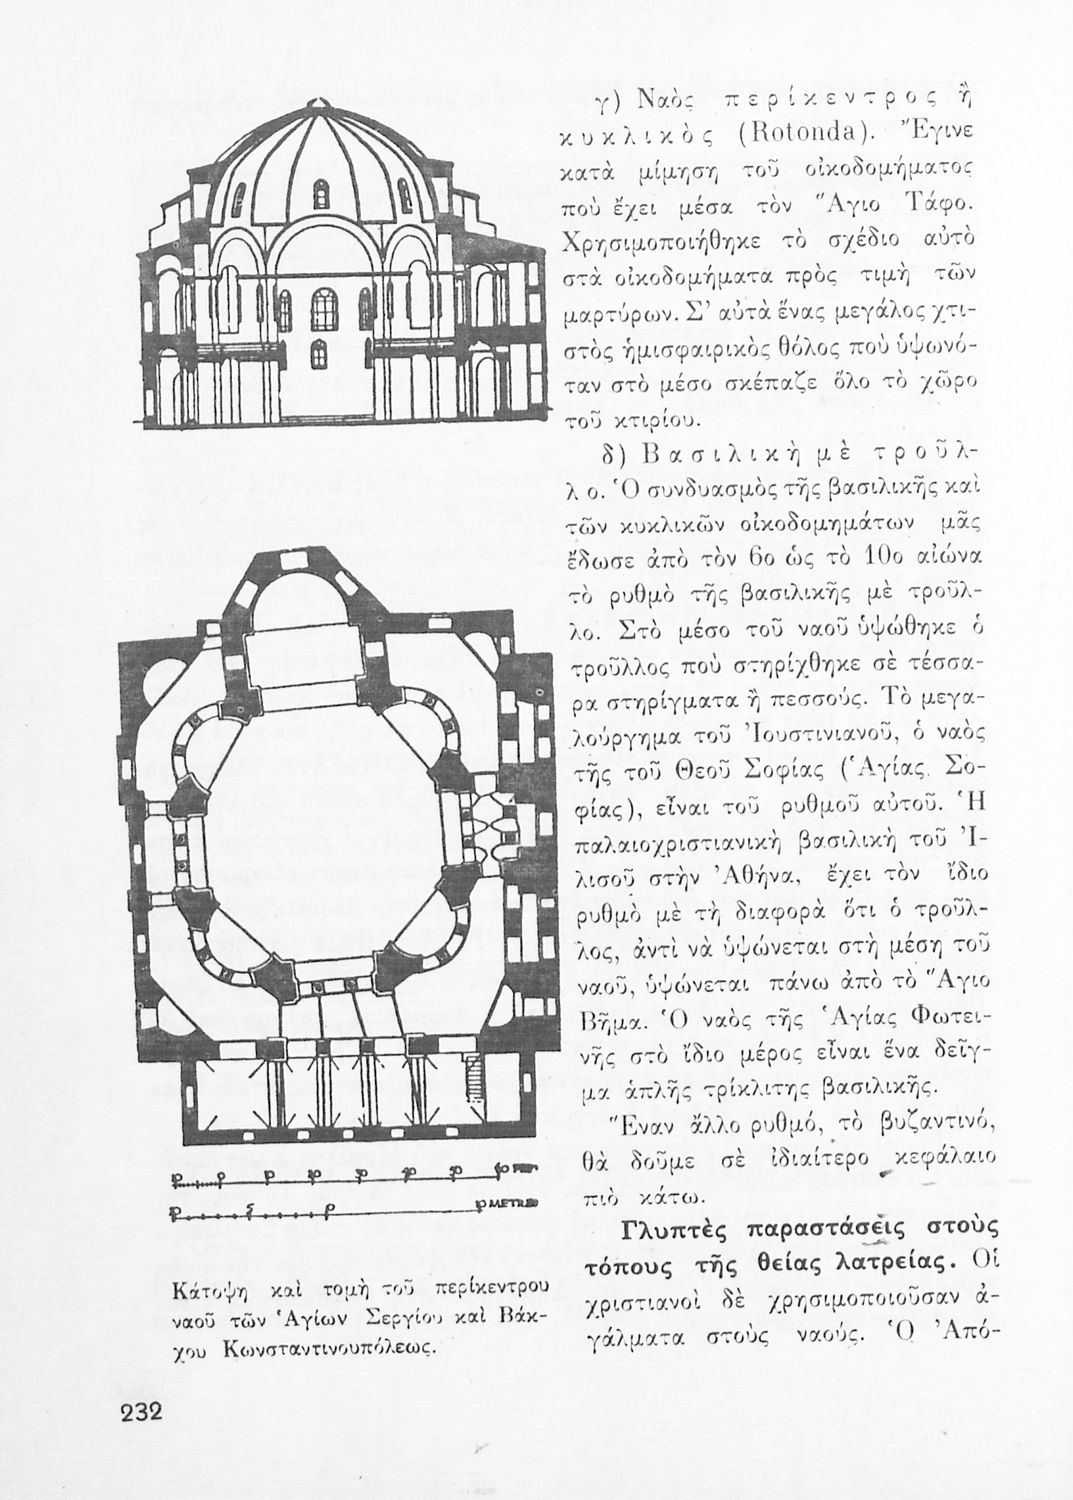 γ) Ναὸς περίκεντρος ἢ
κυκλικὸς (Rotonda). Ἔγινε
κατὰ μίμηση τοῦ οἰκοδομήματος
ποὺ ἔχει μέσα τὸν Ἅγιο Τάφο.
Χρησιμοποιήθηκε τὸ σχέδιο αὐτὸ
στὰ οἰκοδομήματα πρὸς τιμὴ τῶν
μαρτύρων. Σ' αὐτὰ ἕνας μεγάλος χτι-
στὸς ἡμισφαιρικὸς θόλος ποὺ ὑψωνό-
ταν στὸ μέσο σκέπαζε ὅλο τὸ χῶρο
τοῦ κτιρίου.
δ) Βασιλικὴ μὲ τροῦλ-
λο. Ὁ συνδυασμὸς τῆς βασιλικῆς καὶ
τῶν κυκλικῶν οἰκοδομημάτων μᾶς
ἔδωσε ἀπὸ τὸν 6ο ὡς τὸ 10ο αἰώνα
τὸ ρυθμὸ τῆς βασιλικῆς μὲ τροῦλ-
λο. Στὸ μέσο τοῦ ναοῦ ὑψώθηκε ὁ
τροῦλλος ποὺ στηρίχθηκε σὲ τέσσα-
ρα στηρίγματα ἢ πεσσούς. Τὸ μεγα-
λούργημα τοῦ Ἰουστινιανοῦ, ὁ ναὸς
τῆς τοῦ Θεοῦ Σοφίας (Ἁγίας Σο-
φίας), εἶναι τοῦ ρυθμοῦ αὐτοῦ. Ἡ
παλαιοχριστιανικὴ βασιλικὴ τοῦ Ἰ-
λισοῦ στὴν Ἀθήνα, ἔχει τὸν ἴδιο
ρυθμὸ μὲ τὴ διαφορὰ ὅτι ὁ τροῦλ-
λος, ἀντὶ νὰ ὑψώνεται στὴ μέση τοῦ
ναοῦ, ὑψώνεται πάνω ἀπὸ τὸ Ἅγιο
Βῆμα. Ὁ ναὸς τῆς Ἁγίας Φωτει-
νῆς στὸ ἴδιο μέρος εἶναι ἕνα δεῖγ-
μα ἁπλῆς τρίκλιτης βασιλικῆς.
Ἕναν ἄλλο ρυθμό, τὸ βυζαντινό,
θὰ δοῦμε σὲ ἰδιαίτερο κεφάλαιο
πιὸ κάτω.
Γλυπτὲς παραστάσεις στοὺς
τόπους τῆς θείας λατρείας. Οἱ
χριστιανοὶ δὲ χρησιμοποιοῦσαν ἀ-
γάλματα στοὺς ναούς. Ὁ Ἀπό-
5 METRES
Κάτοψη καὶ τομὴ τοῦ περίκεντρου
ναοῦ τῶν Ἁγίων Σεργίου καὶ Βάκ-
χου Κωνσταντινουπόλεως.
232